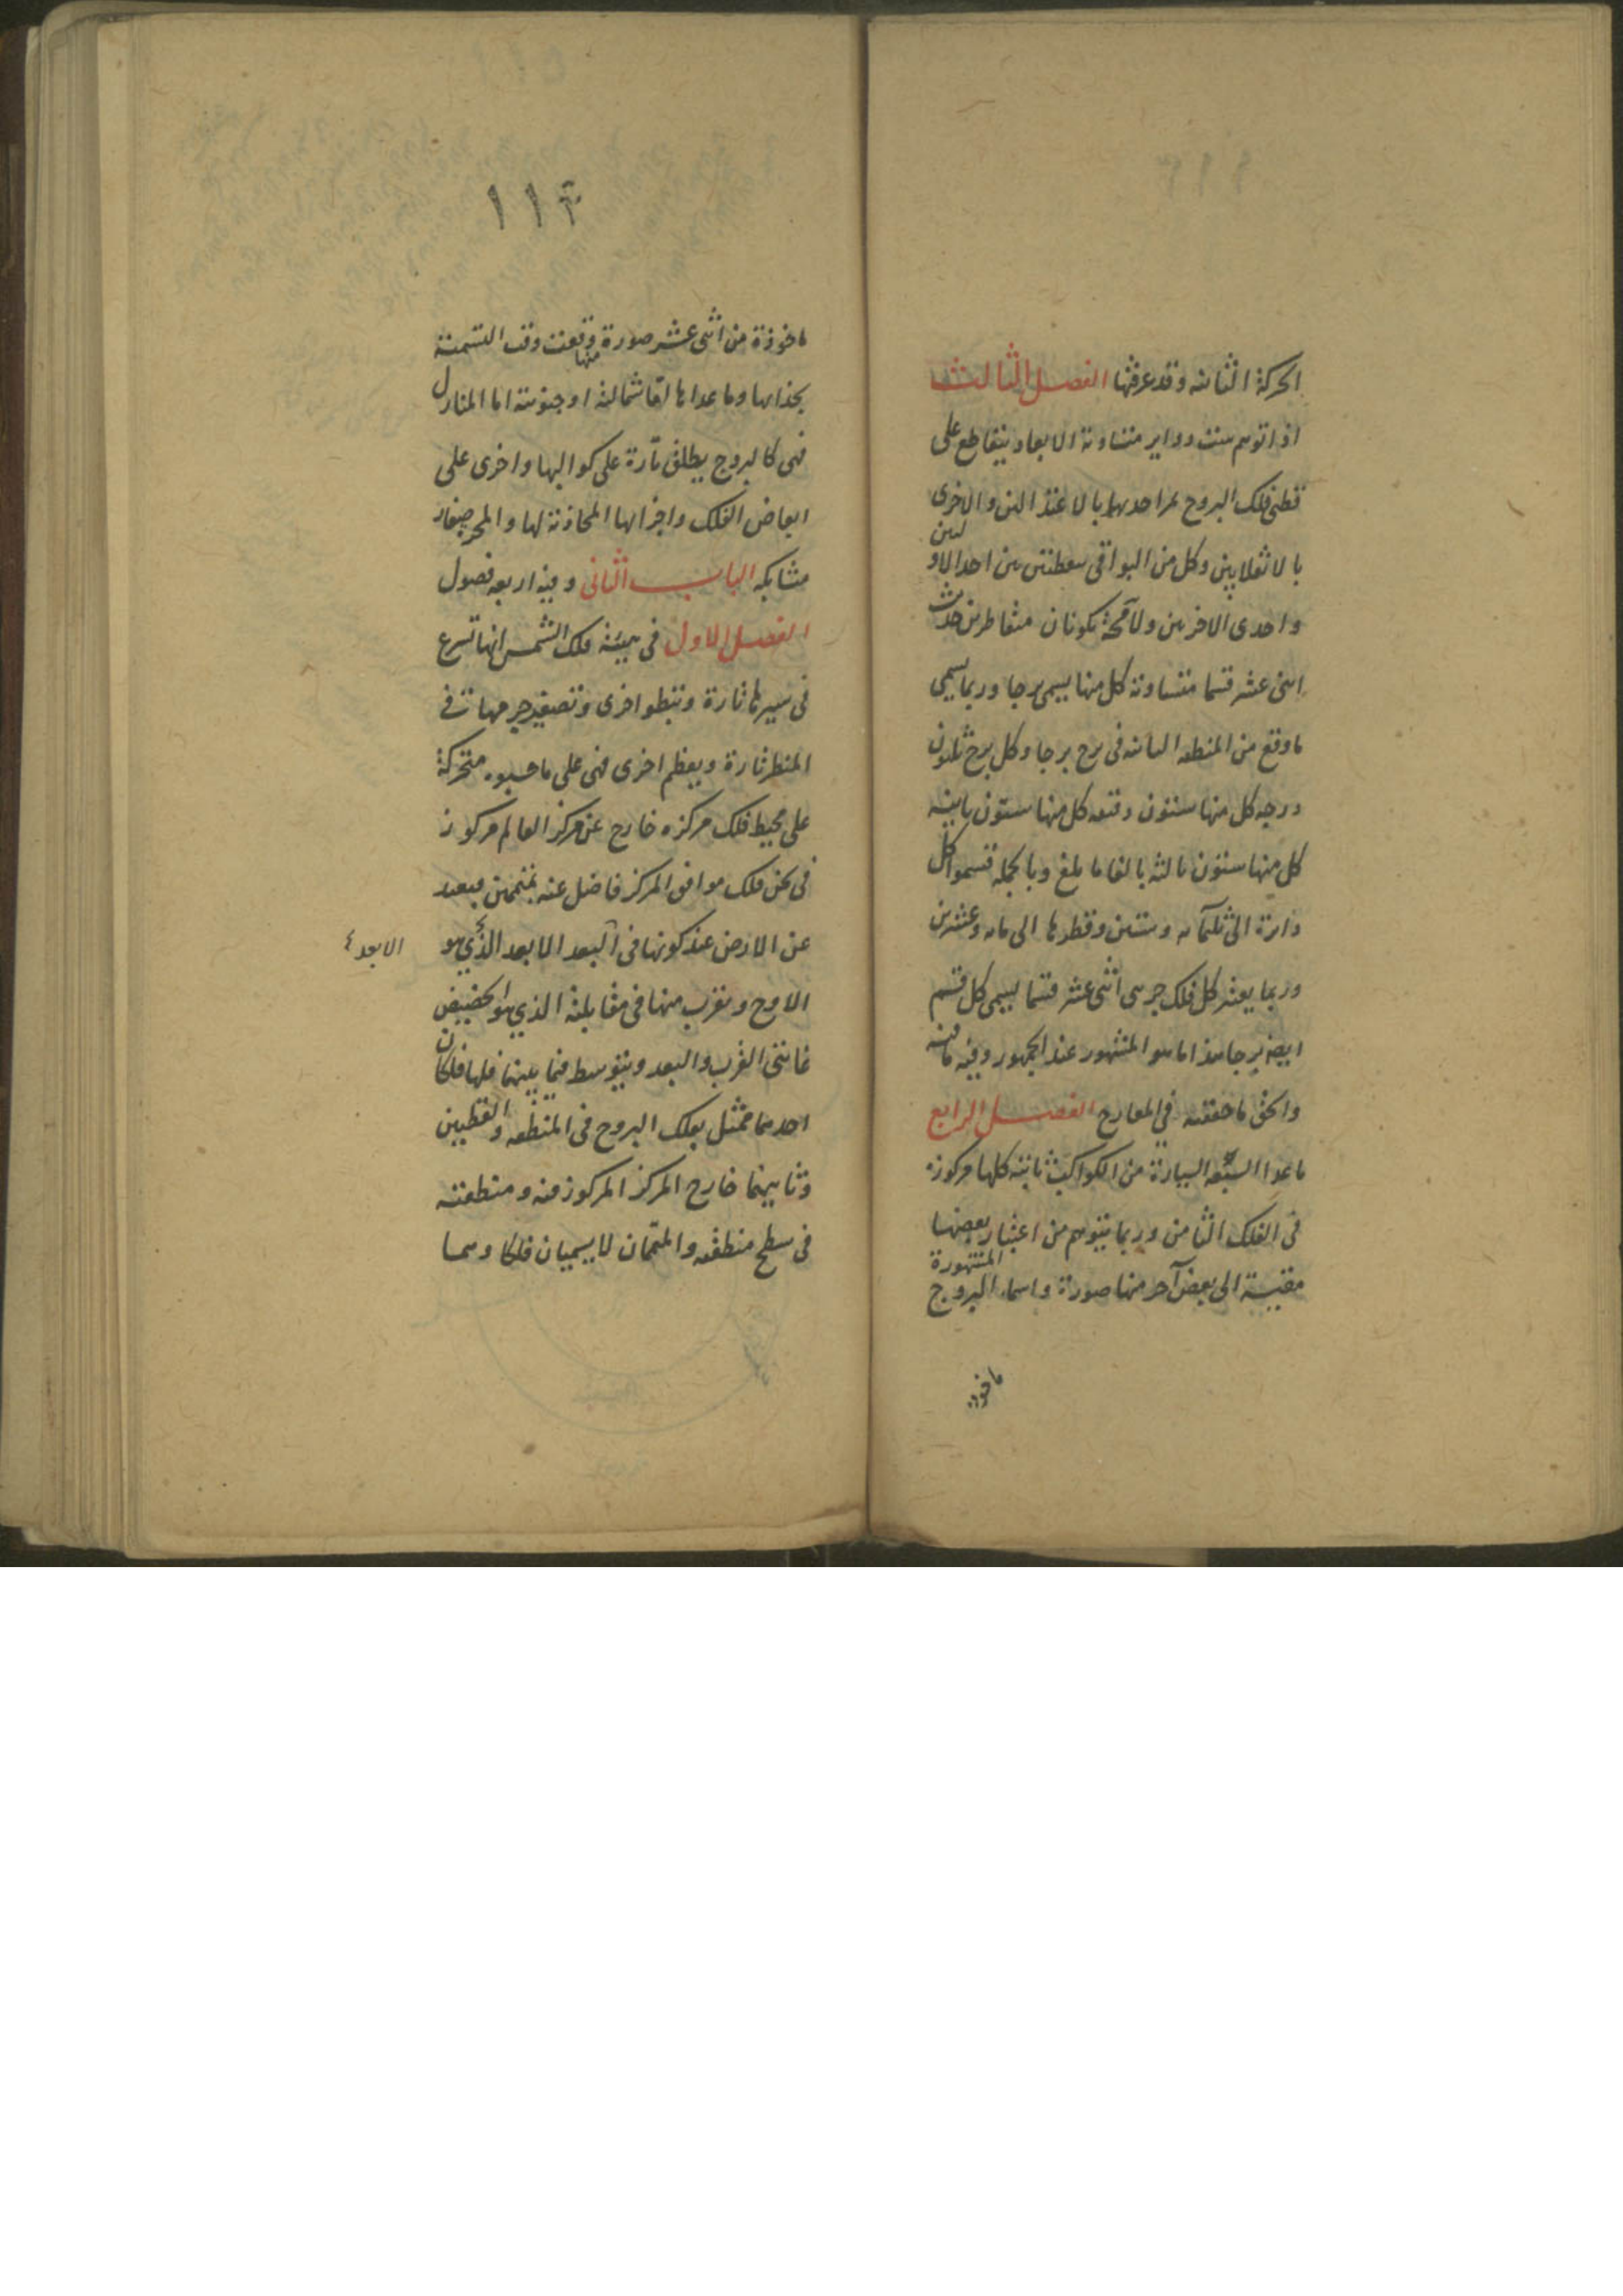 الحركة الثانية وقد عرفتها الفصل الثالث
اذا توهم ست دواير متساوية الابعاد يتقاطع على
قطبي فلك البروج يمر احديها بالاعتدالين والاخرى
بالانقلابين وكل من البواقي بنقطتين بين احد الاولين
واحدى الاخريين ولا محة يكونان متقاطرين حدث
اثنى عشر قسما متساوية كل منها يسمى برجا وربما يسمى
ما وقع من المنطقة الثانية في برج برجا وكل برج ثلثون
درجه كل منها ستون دقيقه كل منها ستون ثانيه
كل منها ستون ثالثه بالغا ما بلغ وبالجمله قسموا كل
دايرة الى ثلثمآئه وستين وقطرها الى مائه وعشرين
وربما يعتبر كل فلك جزئي اثنى عشر قسما يسمى كل قسم
ايضه برجا هذا ما هو المشهور عند الجمهور وفيه ما فيه
والحق ما حققته في المعارج الفصل الرابع
ما عدا السبعه السيارة من الكواكب ثابتة كلها مركوزه
في الفلك الثامن وربما يتوهم من اعتبار بعضها
مقيسة الى بعض آخر منها صورة واسماء البروج المشهورة
ماخوذة
١١٤
ماخوذة من اثنى عشر صورة منها وقعت وقت التسمية
بحذائها وما عداها اما شمالية او جنوبية اما المنازل
فهي كالبروج يطلق تارة على كواكبها واخرى على
ابعاض الفلك واجزائها المحاذية لها والمجره صغار
متشابكه الباب الثاني وفيه اربعه فصول
الفصل الاول في هيئة فلك الشمس انها تسرع
في سيرها تارة وتبطؤ اخرى وتصغر جرمها في
المنظر تارة ويعظم اخرى فهي على ما حسبوه متحركة
على محيط فلك مركزه خارج عن مركز العالم مركوز
في ثخن فلك موافق المركز فاضل عنه بمتممين فيبعد
عن الارض عند كونها في البعد الابعد الذي هو
الابعد ٤
الاوج ويقرب منها في مقابلته الذي هو الحضيض
غايتي القرب والبعد ويتوسط فيما بينهما فلها فلكان
احدهما ممثل بفلك البروج في المنطقه والقطبين
وثانيهما خارج المركز المركوز فيه ومنطقته
في سطح منطقته والمتممان لا يسميان فلكا وهما